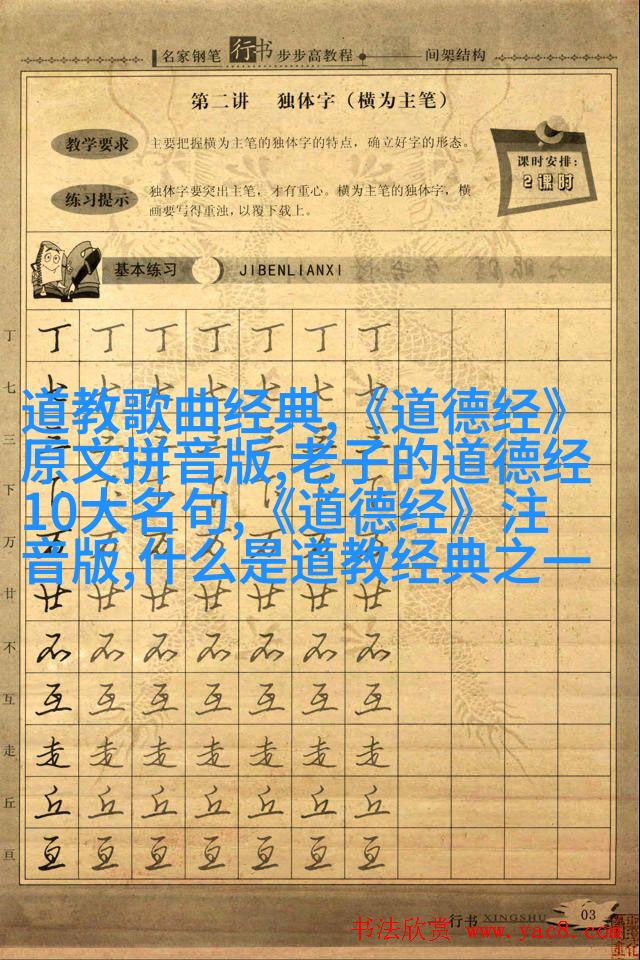 名家钢笔行书步步高教程 间架结构
第二讲 独体字（横为主笔）
教学要求 主要把握横为主笔的独体字的特点，确立好字的形态。
练习提示 独体字要突出主笔，才有重心。横为主笔的独体字，横
画要写得重浊，以覆下载上。
课时安排:
2课时
基本练习 JIBENLIANXI
丁 丁 丁 丁 丁 丁 丁 丁
七 七 七 七 七 七 七 七
道教歌曲经典,《道德经》
三
原文拼音版,老子的道德经
下
10大名句,《道德经》注
万
音版,什么是道教经典之一
廿 廿 廿 廿 廿 廿 廿 廿
不 不 不 不 不 不 不 不
互 互 互 互 互 互 互 互
走 走 走 走 走 走 走 走
丘 丘 丘 丘 丘 丘 丘 丘
亘 亘 亘 亘 亘 亘 亘 亘
行书 XINGSHU 03
书法欣赏 www.yac8.com